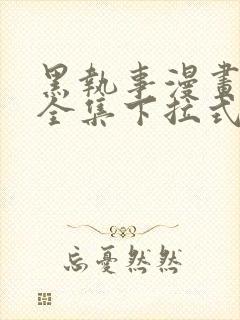 黑執事漫畫
全集下拉式
忘憂然然